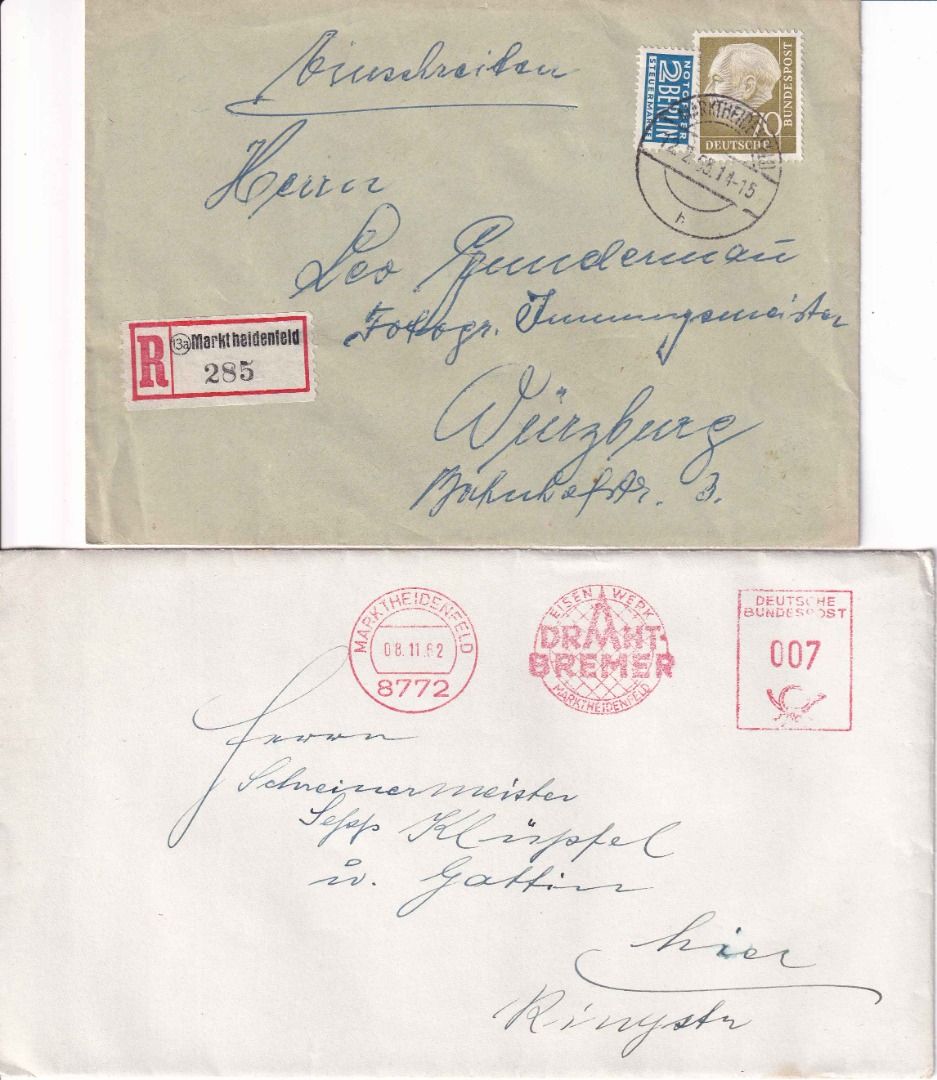 Einschreiben
NOTOPFER
2 BERLIN
STEUERMARKE
70
DEUTSCHE
BUNDESPOST
MARKTHEIDENFELD
12.2.58.14-15
h
Herrn
Leo Gundermañ
Fotogr. Innungsmeister
Würzburg
Bahnhofstr. 3.
R
13a Marktheidenfeld
285
MARKTHEIDENFELD
08.11.62
8772
EISEN WERK
DRAHT
BREMER
MARKTHEIDENFELD
DEUTSCHE
BUNDESPOST
007
Herrn
Schreinermeister
Sepp Klüpfel
u. Gattin
hier
Ringstr